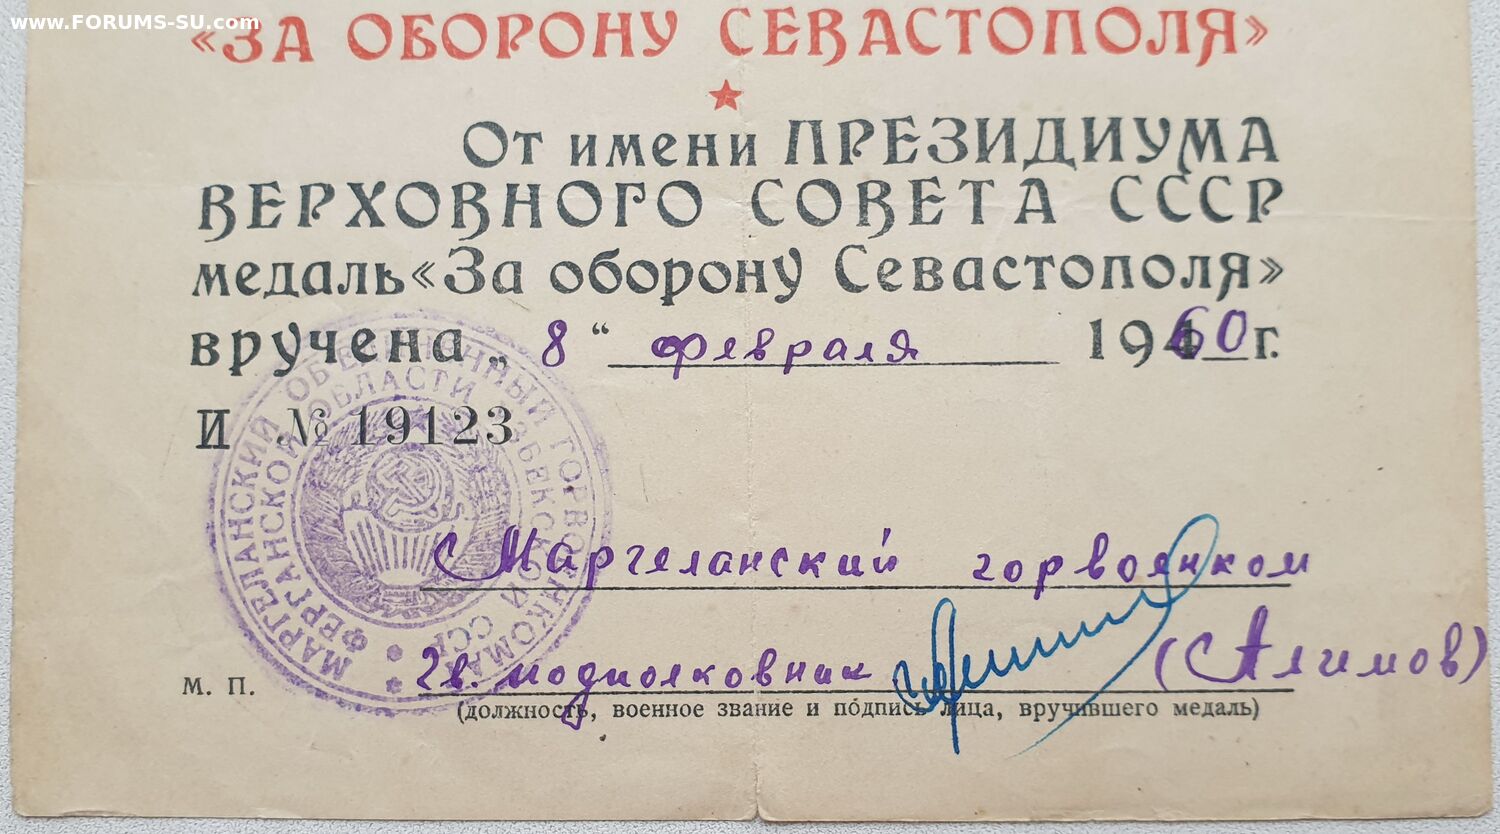 www.FORUMS-SU.com
«ЗА ОБОРОНУ СЕВАСТОПОЛЯ»
От имени ПРЕЗИДИУМА
ВЕРХОВНОГО СОВЕТА СССР
медаль «За оборону Севастополя»
вручена „ 8 “ февраля 1960 г.
И № 19123
МАРГЕЛАНСКИЙ ОБЪЕДИНЕННЫЙ ГОРВОЕНКОМАТ
ФЕРГАНСКОЙ ОБЛАСТИ УЗБЕКСКОЙ ССР
Маргеланский горвоенком
гв. подполковник (Алимов)
М. П.
(должность, военное звание и подпись лица, вручившего медаль)